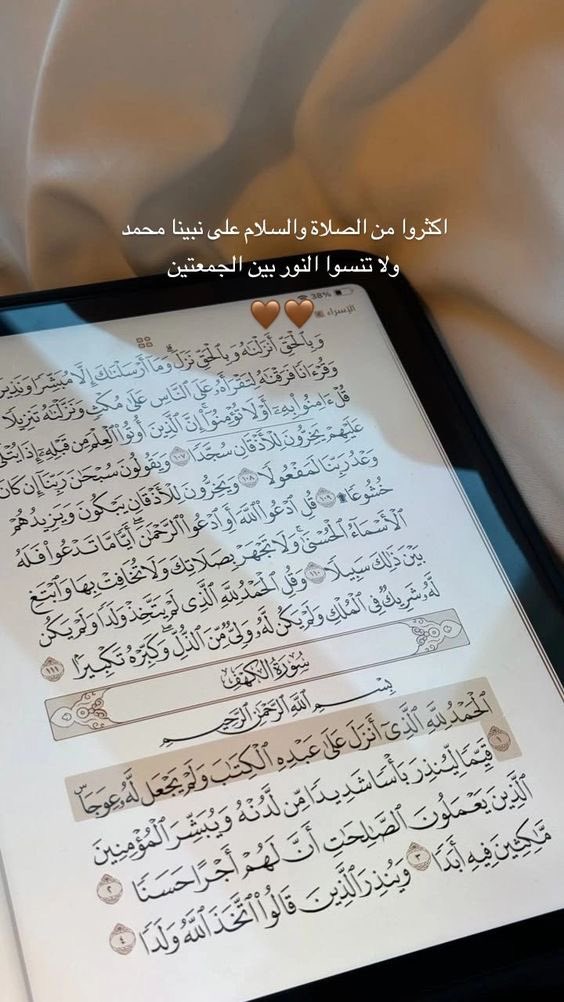 اكثروا من الصلاة والسلام على نبينا محمد
ولا تنسوا النور بين الجمعتين
38%
الإسراء
وَبِالْحَقِّ أَنزَلْنَٰهُ وَبِالْحَقِّ نَزَلَ وَمَا أَرْسَلْنَٰكَ إِلَّا مُبَشِّرًا وَنَذِيرًا
وَقُرْءَانًا فَرَقْنَٰهُ لِتَقْرَأَهُۥ عَلَى النَّاسِ عَلَىٰ مُكْثٍ وَنَزَّلْنَٰهُ تَنزِيلًا
قُلْ ءَامِنُوا۟ بِهِۦٓ أَوْ لَا تُؤْمِنُوٓا۟ إِنَّ الَّذِينَ أُوتُوا۟ الْعِلْمَ مِن قَبْلِهِۦٓ إِذَا يُتْلَىٰ
عَلَيْهِمْ يَخِرُّونَ لِلْأَذْقَانِ سُجَّدًا ١٠٧ وَيَقُولُونَ سُبْحَٰنَ رَبِّنَآ إِن كَانَ
وَعْدُ رَبِّنَا لَمَفْعُولًا ١٠٨ وَيَخِرُّونَ لِلْأَذْقَانِ يَبْكُونَ وَيَزِيدُهُمْ
خُشُوعًا ۩ ١٠٩ قُلِ ادْعُوا۟ اللَّهَ أَوِ ادْعُوا۟ الرَّحْمَٰنَ أَيًّا مَّا تَدْعُوا۟ فَلَهُ
الْأَسْمَآءُ الْحُسْنَىٰ وَلَا تَجْهَرْ بِصَلَاتِكَ وَلَا تُخَافِتْ بِهَا وَابْتَغِ
بَيْنَ ذَٰلِكَ سَبِيلًا ١١٠ وَقُلِ الْحَمْدُ لِلَّهِ الَّذِى لَمْ يَتَّخِذْ وَلَدًا وَلَمْ يَكُن
لَّهُۥ شَرِيكٌ فِى الْمُلْكِ وَلَمْ يَكُن لَّهُۥ وَلِىٌّ مِّنَ الذُّلِّ وَكَبِّرْهُ تَكْبِيرًۢا ١١١
سُورَةُ الْكَهْفِ
بِسْمِ اللَّهِ الرَّحْمَٰنِ الرَّحِيمِ
الْحَمْدُ لِلَّهِ الَّذِىٓ أَنزَلَ عَلَىٰ عَبْدِهِ الْكِتَٰبَ وَلَمْ يَجْعَل لَّهُۥ عِوَجَاۜ ١
قَيِّمًا لِّيُنذِرَ بَأْسًا شَدِيدًا مِّن لَّدُنْهُ وَيُبَشِّرَ الْمُؤْمِنِينَ
الَّذِينَ يَعْمَلُونَ الصَّٰلِحَٰتِ أَنَّ لَهُمْ أَجْرًا حَسَنًا ٢
مَّٰكِثِينَ فِيهِ أَبَدًا ٣ وَيُنذِرَ الَّذِينَ قَالُوا۟ اتَّخَذَ اللَّهُ وَلَدًا ٤